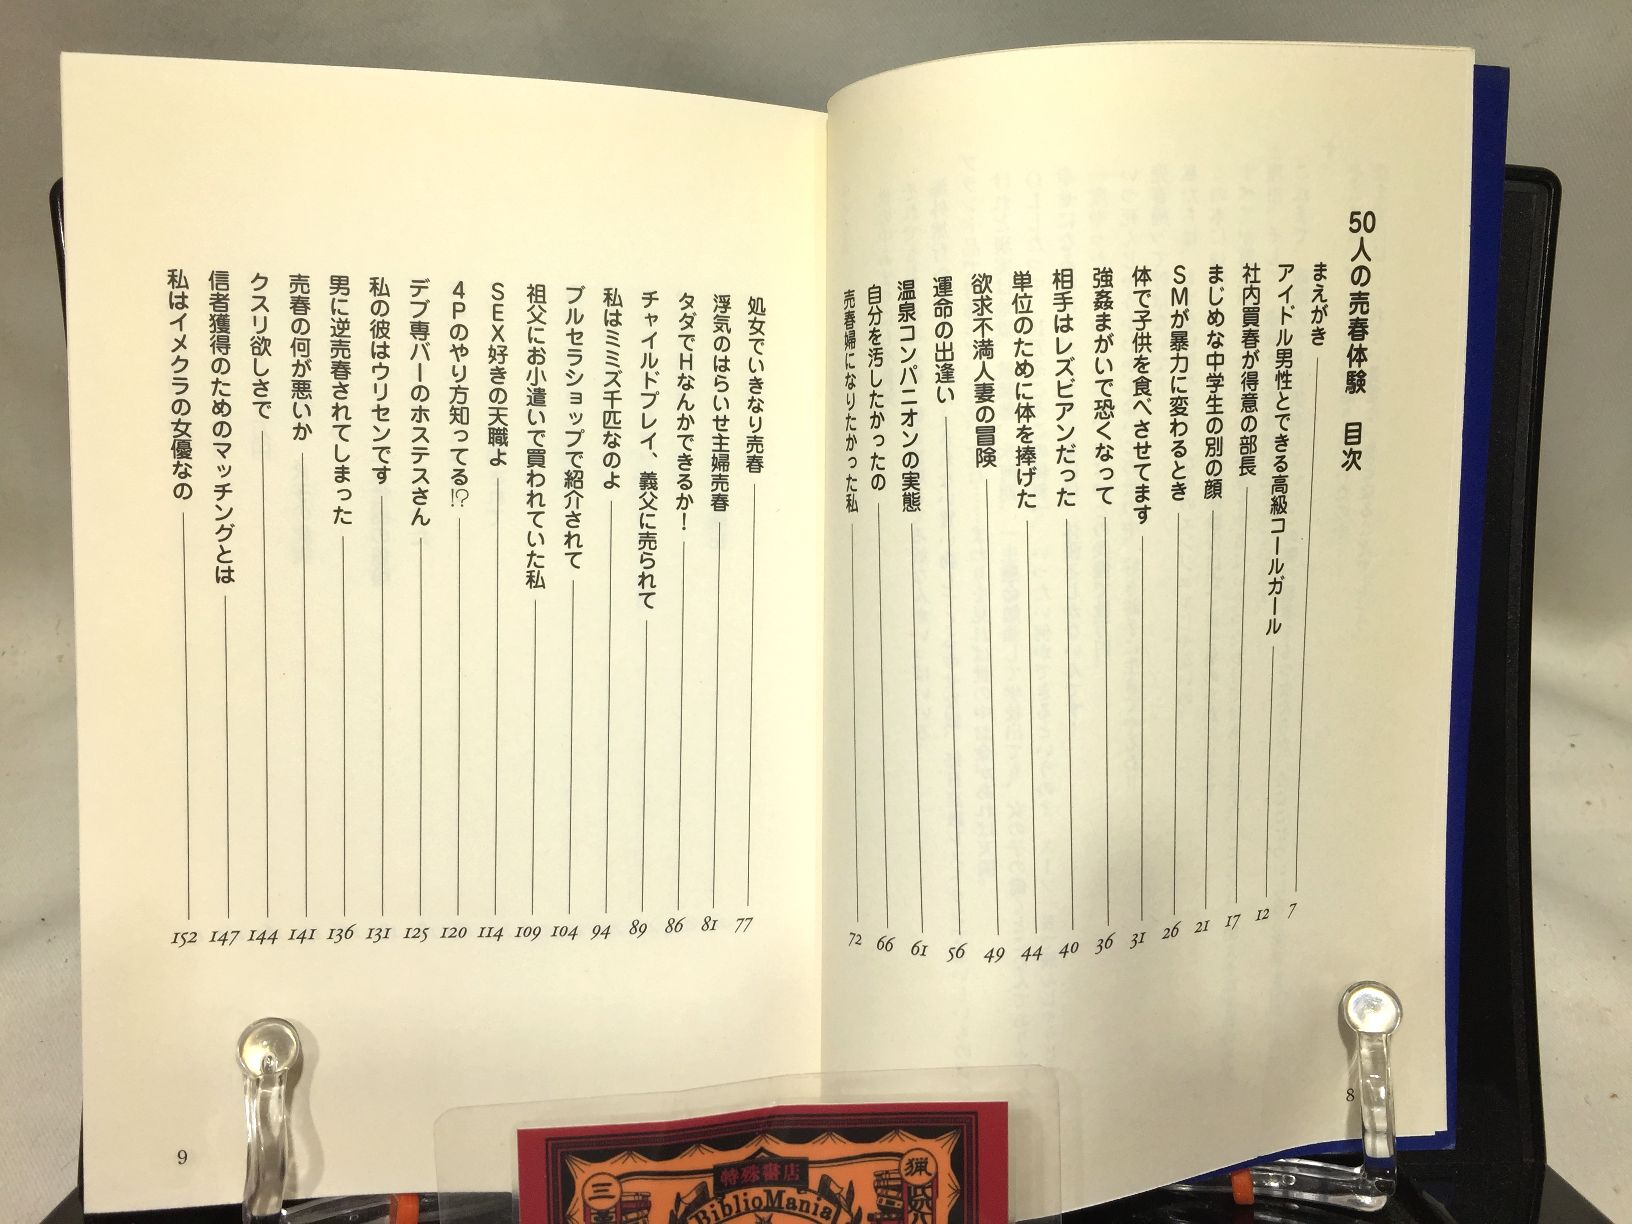 50人の売春体験 目次
まえがき 7
アイドル男性とできる高級コールガール 12
社内買春が得意の部長 17
まじめな中学生の別の顔 21
SMが暴力に変わるとき 26
体で子供を食べさせてます 31
強姦まがいで恐くなって 36
相手はレズビアンだった 40
単位のために体を捧げた 44
欲求不満人妻の冒険 49
運命の出逢い 56
温泉コンパニオンの実態 61
自分を汚したかったの 66
売春婦になりたかった私 72
8
処女でいきなり売春 77
浮気のはらいせ主婦売春 81
タダでHなんかできるか! 86
チャイルドプレイ、義父に売られて 89
私はミミズ千匹なのよ 94
ブルセラショップで紹介されて 104
祖父にお小遣いで買われていた私 109
SEX好きの天職よ 114
4Pのやり方知ってる!? 120
デブ専バーのホステスさん 125
私の彼はウリセンです 131
男に逆売春されてしまった 136
売春の何が悪いか 141
クスリ欲しさで 144
信者獲得のためのマッチングとは 147
私はイメクラの女優なの 152
9
特殊書店
BiblioMania